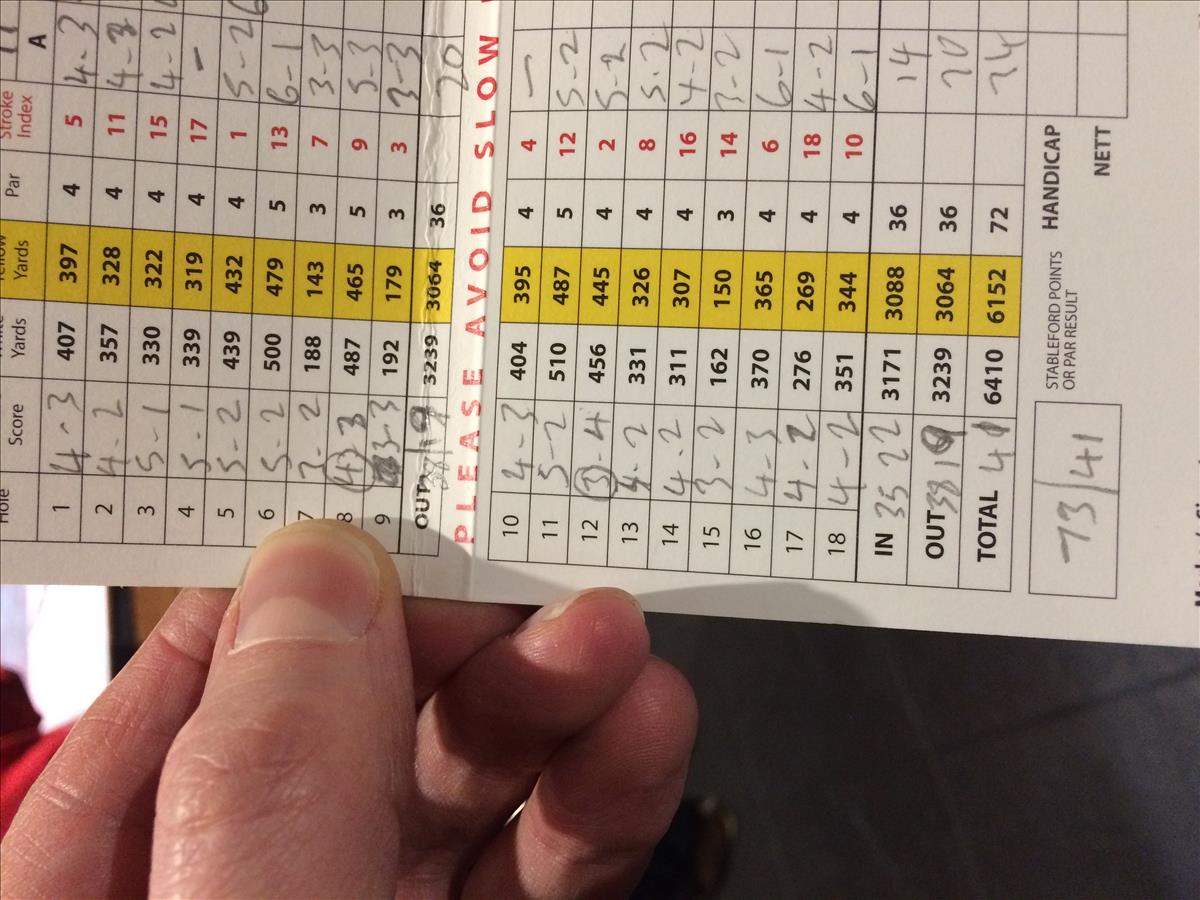 Hole Score Yards Yards Par Stroke Index A
1 4-3 407 397 4 5 4-3
2 4-2 357 328 4 11 4-3
3 5-1 330 322 4 15 4-2
4 5-1 339 319 4 17 -
5 5-2 439 432 4 1 5-2
6 5-2 500 479 5 13 6-1
7 3-2 188 143 3 7 3-3
8 4-3 487 465 5 9 5-3
9 3-3 192 179 3 3 3-3
OUT 38/19 3239 3064 36 20
PLEASE AVOID SLOW
10 4-3 404 395 4 4 -
11 5-2 510 487 5 12 5-2
12 3-4 456 445 4 2 5-2
13 4-2 331 326 4 8 5-2
14 4-2 311 307 4 16 4-2
15 3-2 162 150 3 14 3-2
16 4-3 370 365 4 6 6-1
17 4-2 276 269 4 18 4-2
18 4-2 351 344 4 10 6-1
IN 35 22 3171 3088 36 14
OUT 38 19 3239 3064 36 20
TOTAL 41 6410 6152 72 34
73/41 STABLEFORD POINTS OR PAR RESULT HANDICAP
NETT